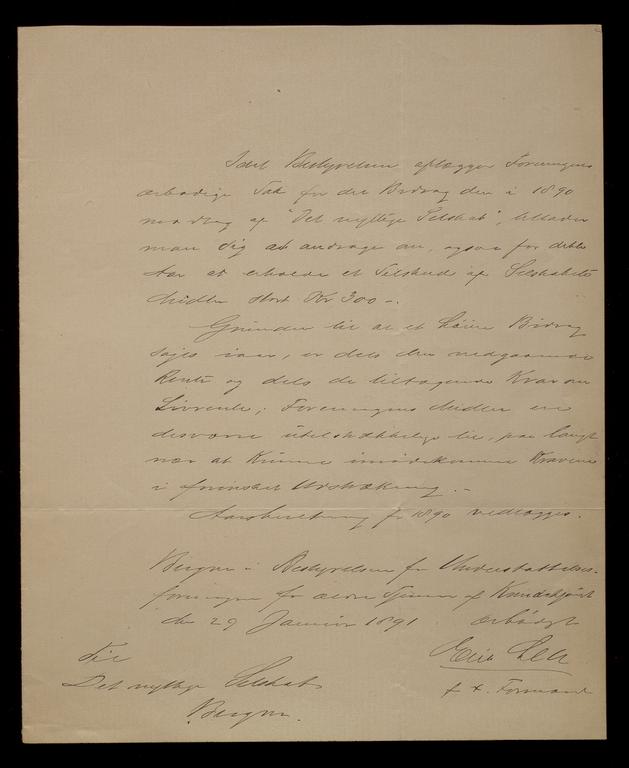 Idet Bestyrelsen aflægger Foreningens
ærbødige Tak for det Bidrag den i 1890
modtog af "Det nyttige Selskab", tillader
man sig at andrage om, ogsaa for dette
Aar at erholde et Tilskud af Selskabets
Midler stort Kr 300 -.
Grunden til at et høiere Bidrag
søges iaar, er dels den nedgaaende
Rente og dels de tiltagende Krav om
Livrente; Foreningens Midler ere
desværre utilstrækkelige til, paa langt
nær at kunne imødekomme Kravene
i ønsket Udstrækning. -
Aarsberetning for 1890 vedlægges.
Bergen i Bestyrelsen for Understøttelses-
foreningen for ældre Tjenere af Kvindekjøn
den 29 Januar 1891 ærbødigst
f. t. Formand
Til
Det nyttige Selskab
Bergen.